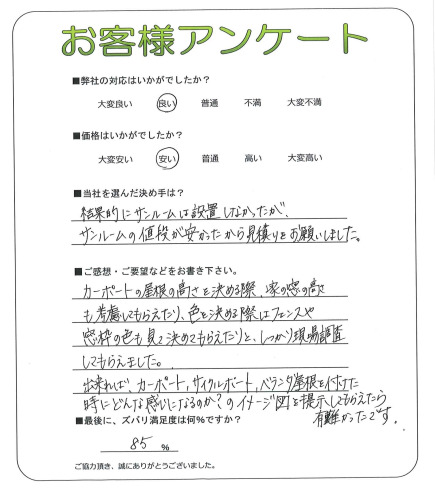 お客様アンケート
■弊社の対応はいかがでしたか？
大変良い 良い 普通 不満 大変不満
■価格はいかがでしたか？
大変安い 安い 普通 高い 大変高い
■当社を選んだ決め手は？
結果的にサンルームは設置しなかったが、
サンルームの値段が安かったから見積りをお願いしました。
■ご感想・ご要望などをお書き下さい。
カーポートの屋根の高さを決める際、家の窓の高さ
も考慮してもらえたり、色を決める際はフェンスや
窓枠の色も見て決めてもらえたりと、しっかり現場調査
してもらえました。
出来れば、カーポート、サイクルポート、ベランダ屋根を付けた
時にどんな感じになるのか？のイメージ図を提示してもらえたら
有難かったです。
■最後に、ズバリ満足度は何％ですか？
85 %
ご協力頂き、誠にありがとうございました。